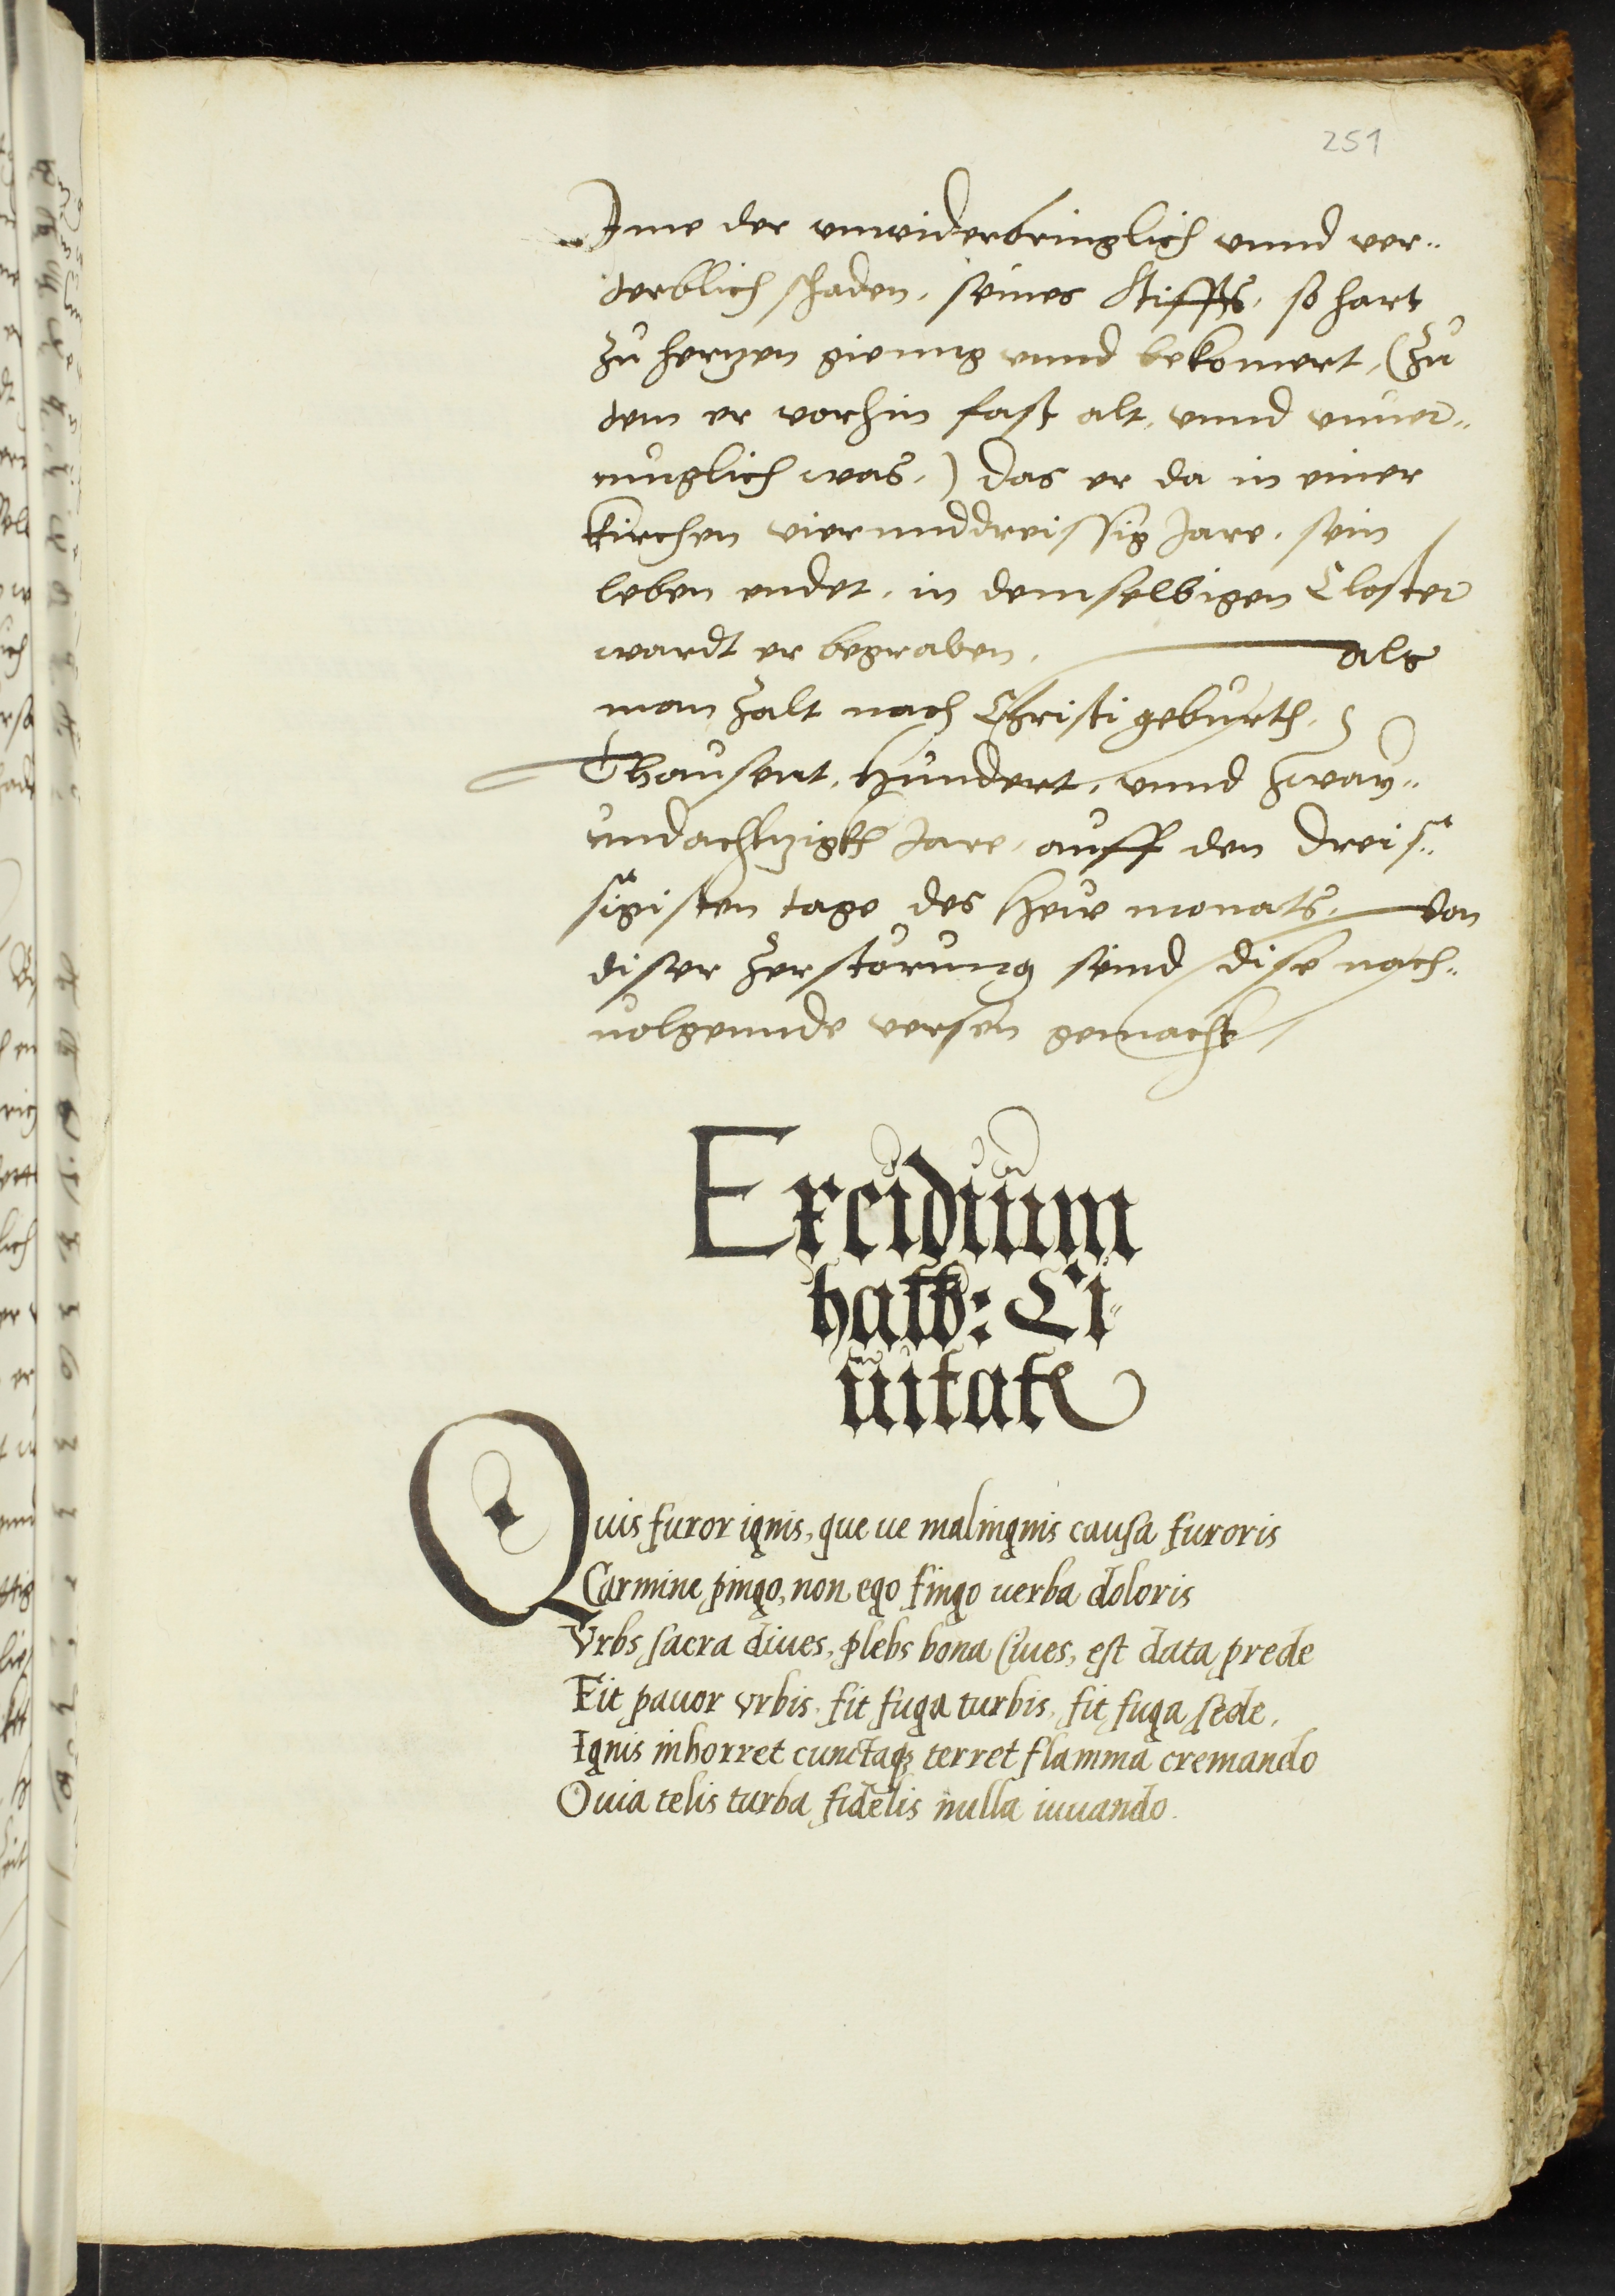 251
Ime der unwiderbringlich unnd ver„
terblich schaden, seines Stiffts, so hart
zu hertzen gienng unnd bekomert, (zu
dem er vorhin fast alt, unnd unuer„
muglich was,) das er da in einer
kirchen vierunddreissig Jare, sein
leben endet, in demselbigen Closter
wardt er begraben, als
man zalt nach Christi geburth,
Thausent, hundert, unnd zway„
undachtzigkh Jare, auff den dreis„
sigisten tage des Hew monats, von
diser zerstörung seind dise nach„
uolgennde versen gemacht
Excidium
halb: Ci„
uitatꝭ
Quis furor ignis, que ue malingnis causa furoris
Carmine pingo, non ego fingo uerba doloris
Vrbs sacra diues, plebs bona Ciues, est data prede
Fit pauor vrbis, fit fuga turbis, fit fuga sede,
Ignis inhorret cunctaqꝫ terret flamma cremando
Ouia telis turba fidelis nulla iuuando.